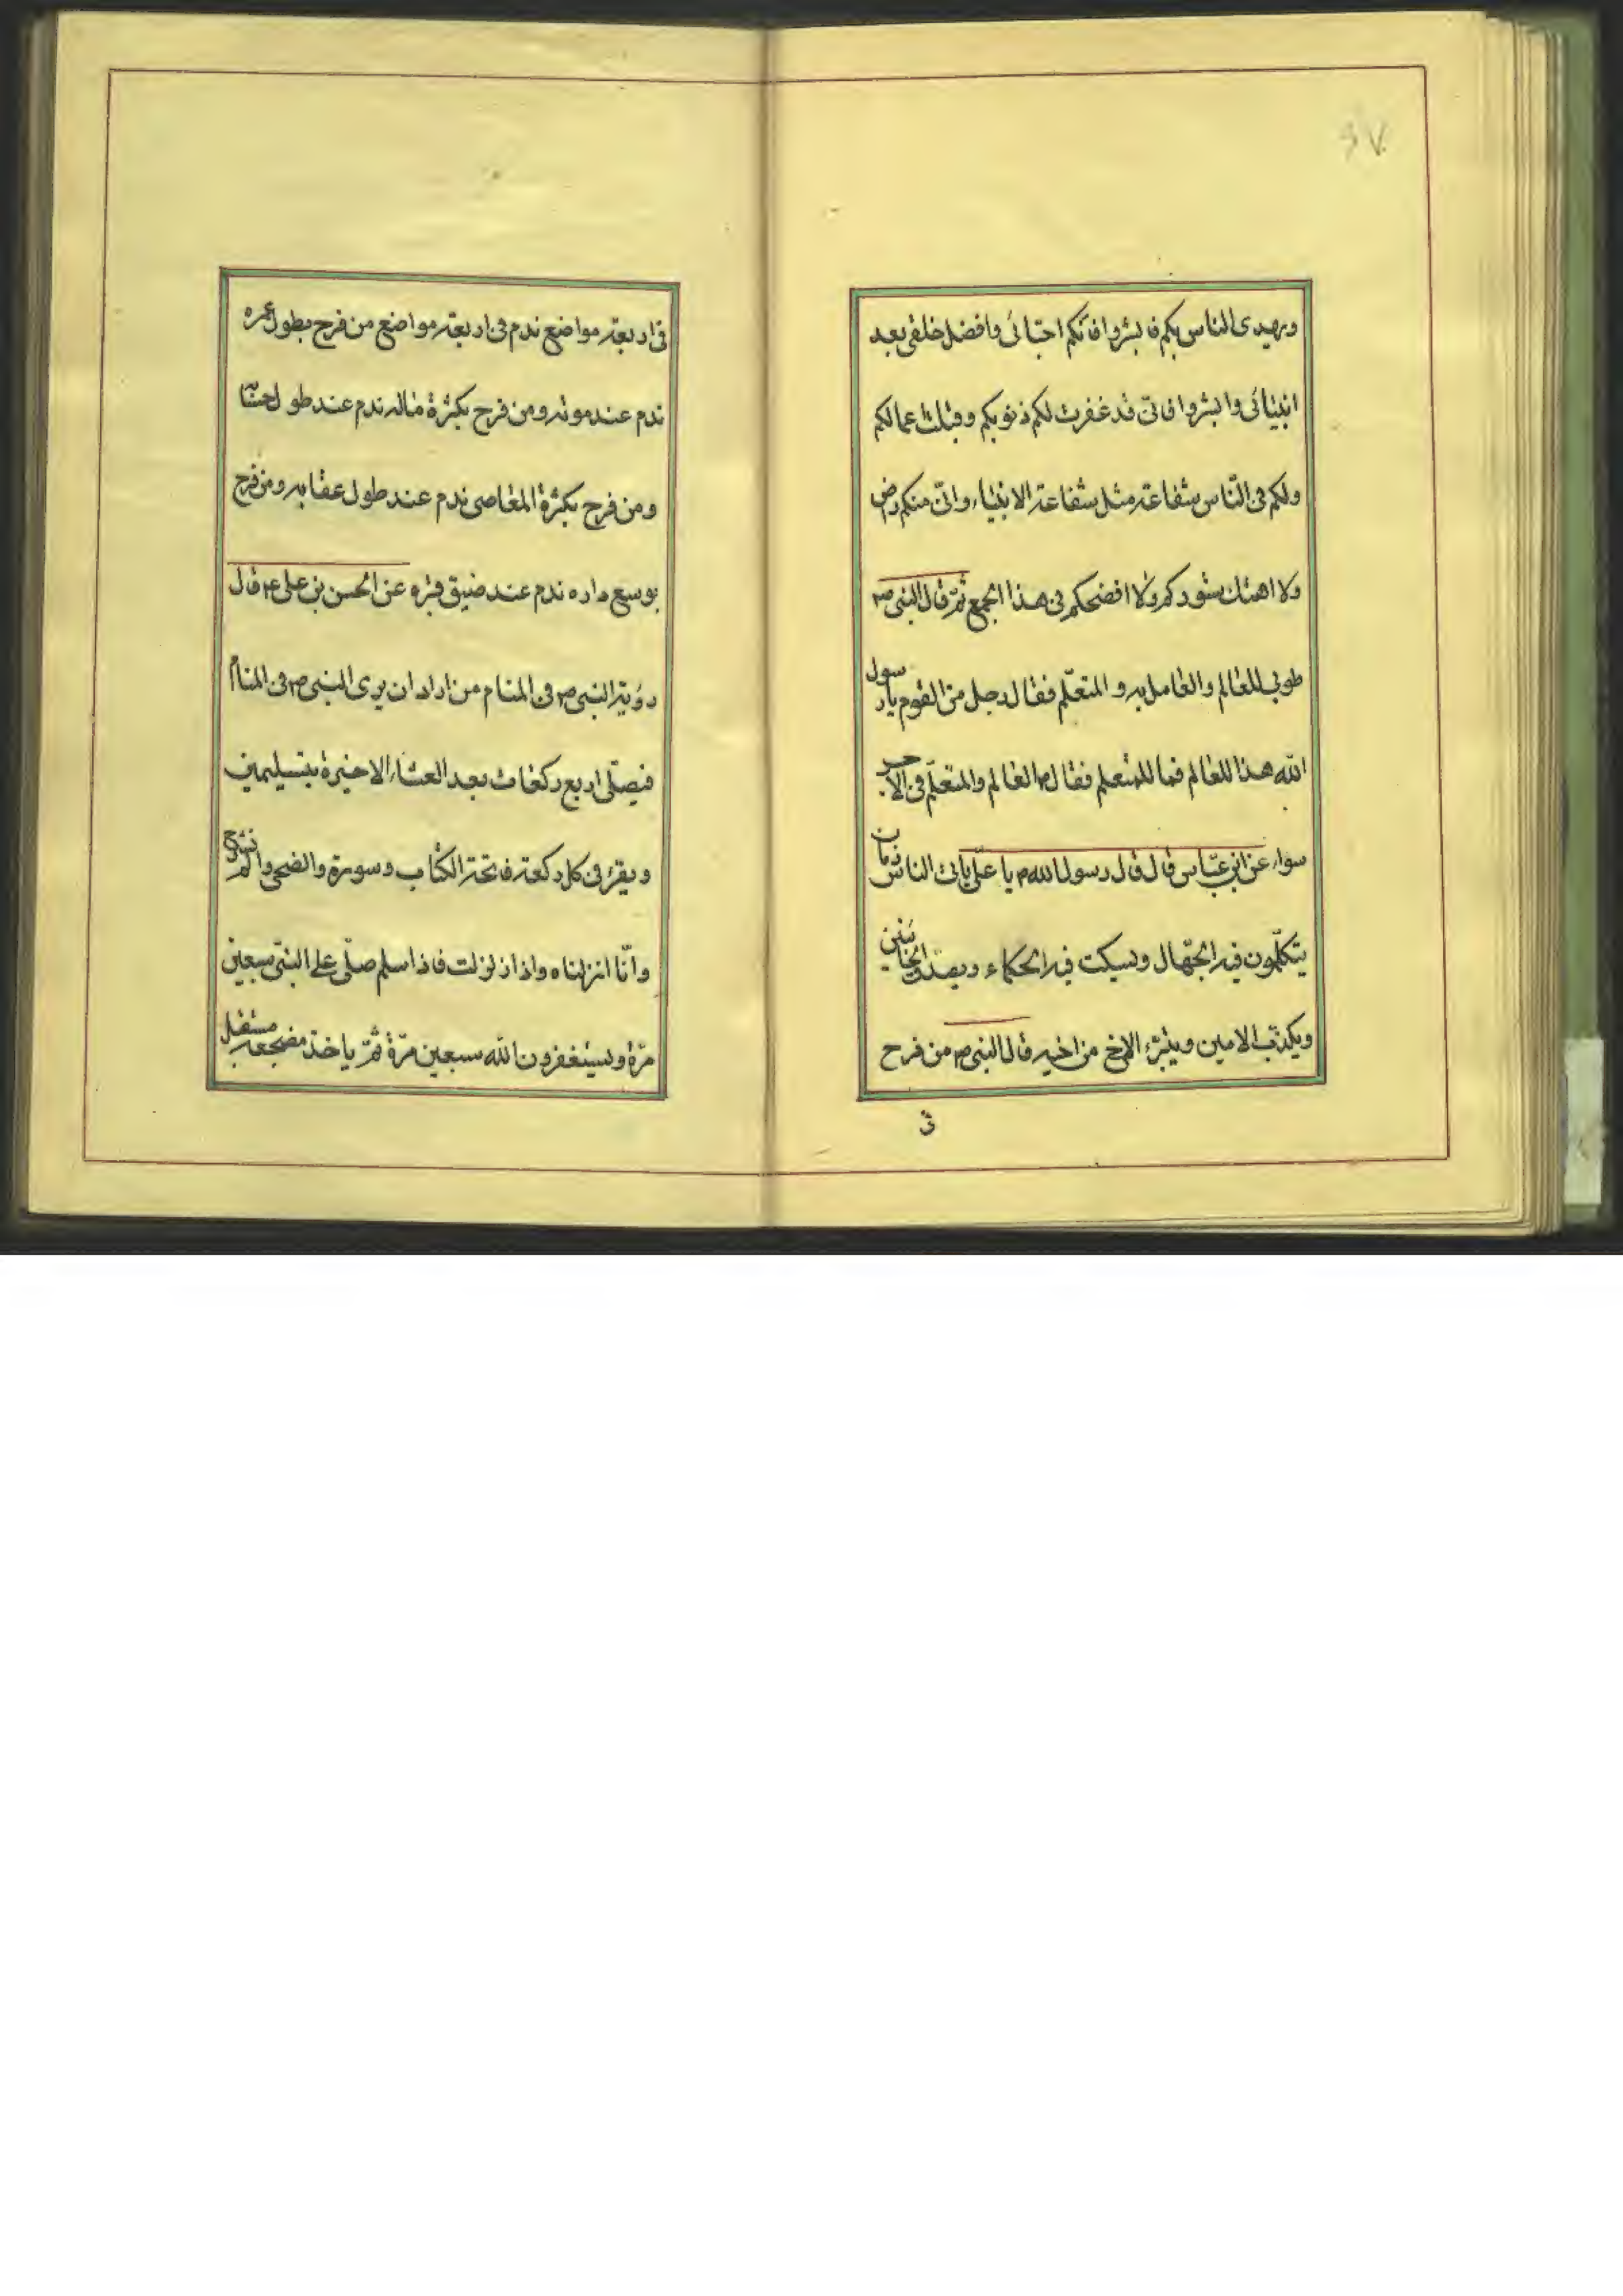 ۶۷
ويهدى الناس بكم فابشروا فانكم احبائى وافضل خلقى بعد
انبيائى وابشروا فانى قد غفرت لكم ذنوبكم وقبلت اعمالكم
ولكم فى الناس شفاعة مثل شفاعة الانبياء وانى منكم رض
ولا اهتك ستوركم ولا افضحكم فى هذا الجمع ثم قال النبى ص
طوبى للعالم والعامل به والمتعلم فقال رجل من القوم يا رسول
الله هذا للعالم فما للمتعلم فقال العالم والمتعلم فى الاجر
سواء عن ابن عباس قال قال رسول الله ص يا على ياتى الناس زمان
يتكلمون فيه الجهال ويسكت فيه الحكماء ويصدق الخائنين
ويكذب الامين ويتبرء الاخ من اخيه قال النبى ص من فرح
فى
فى اربعة مواضع ندم فى اربعة مواضع من فرح بطول عمره
ندم عند موته ومن فرح بكثرة ماله ندم عند طول حسابه
ومن فرح بكثرة المعاصى ندم عند طول عقابه ومن فرح
بوسيع داره ندم عند ضيق قبره عن الحسن بن على ع قال
رؤية النبى ص فى المنام من اراد ان يرى النبى ص فى المنام
فيصلى اربع ركعات بعد العشاء الاخيرة بتسليمين
ويقرء فى كل ركعة فاتحة الكتاب وسورة والضحى والم نشرح
وانا انزلناه واذا زلزلت فاذا سلم صلى على النبى سبعين
مرة ويستغفرون الله سبعين مرة ثم ياخذ مضجعه مستقبل